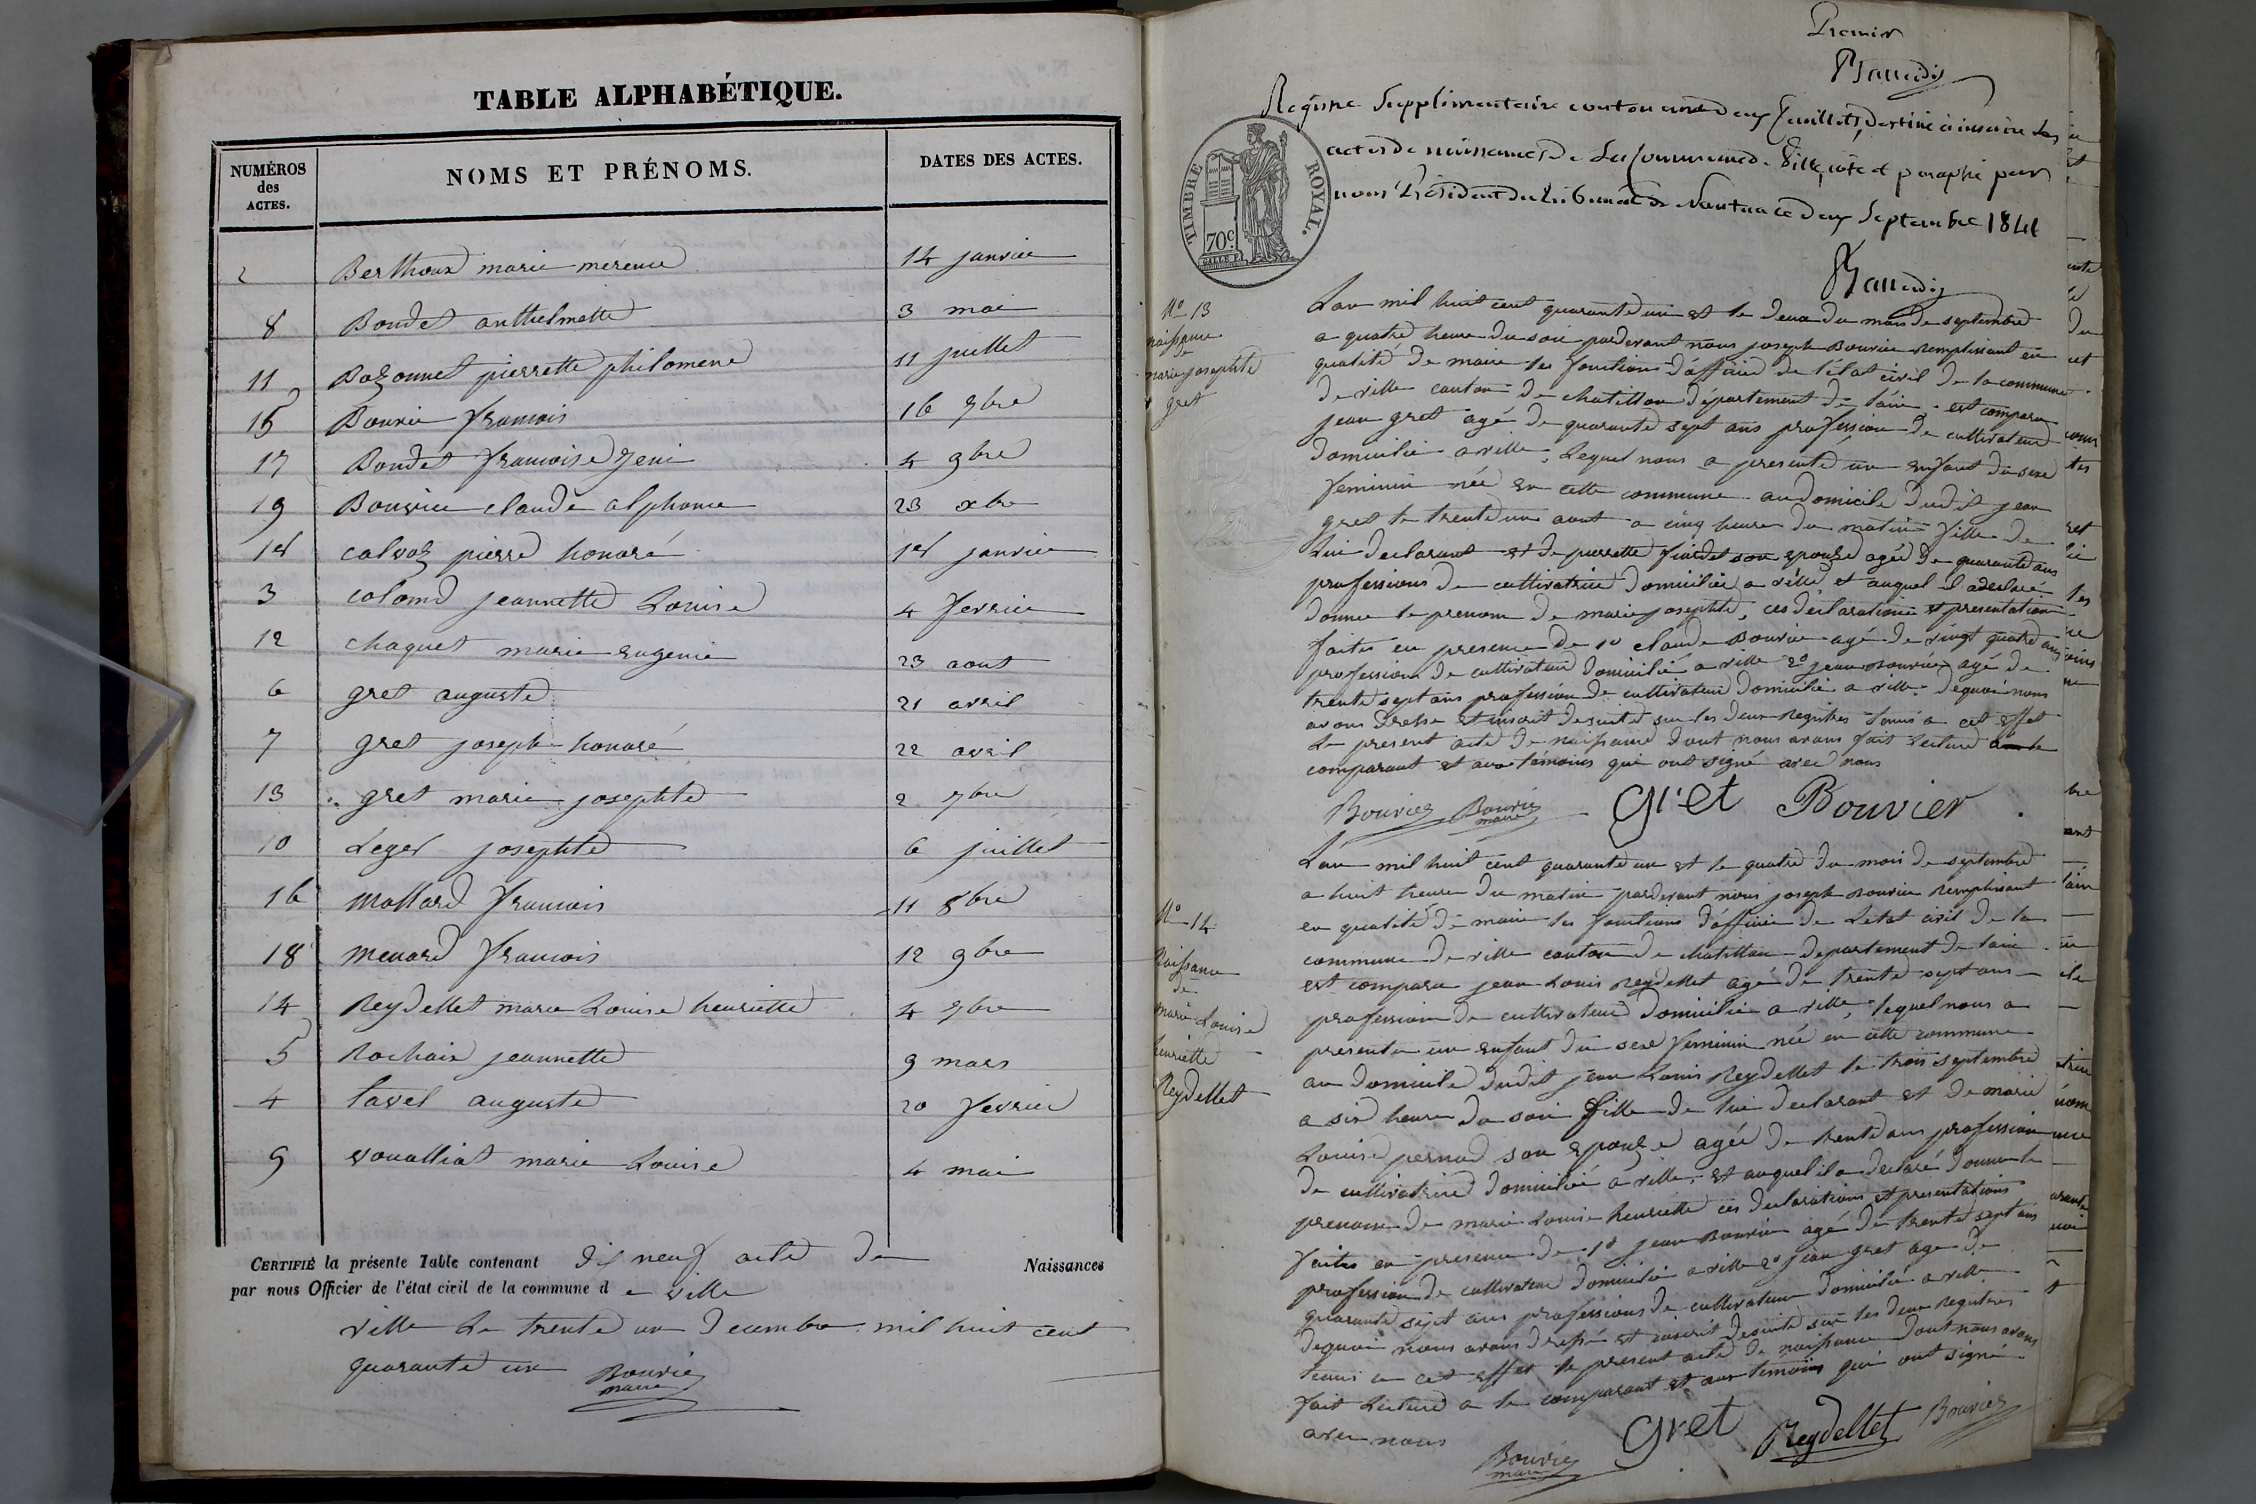 TABLE ALPHABÉTIQUE.
NUMÉROS des ACTES. NOMS ET PRÉNOMS. DATES DES ACTES.
2 Berthoux marie 14 janvier
8 Boudet anthelmette 3 mai
11 Bozonnet pierrette philomene 11 juillet
15 Bouvier francois 16 7bre
17 Boudet francoise 4 9bre
19 Bouvier claude alphonse 23 xbre
1er calvoz pierre honoré 1er janvier
3 colomb jeannette Louise 4 fevrier
12 chaquet marie eugenie 23 aout
6 gret auguste 21 avril
7 gret joseph honoré 22 avril
13 gret marie josephte 2 7bre
10 Leger josephte 6 juillet
16 Mollard francois 11 8bre
18 menard francois 12 9bre
14 Reydellet marie Louise henriette 4 7bre
5 Rochaix jeannette 9 mars
4 tavel auguste 20 fevrier
9 vouilliat marie Louise 4 mai
CERTIFIÉ la présente Table contenant dix neuf acte de Naissances
par nous Officier de l'état civil de la commune d e ville
ville Le trente un Decembre mil huit cent
quarante un Bouvier
maire
Premier
Registre Supplémentaire contenant deux feuillets, destiné à inscrire les
actes de naissances de la Commune de Ville, coté et paraphé par
nous Président du Tribunal de Nantua ce deux Septembre 1841
TIMBRE ROYAL.
70c
No 13
naissance
de
marie josephte
gret
L'an mil huit cent quarante un et le deux du mois de septembre
a quatre heure du soir pardevant nous joseph Bouvier Remplissant en
qualité de maire les fonctions d'officier de l'état civil de la commune
de ville canton de chatillon département de l'ain. est comparu
jean gret agé de quarante sept ans profession de cultivateur
domicilié a ville, Lequel nous a presenté un enfant du sexe
feminin née en cette commune au domicile dudit jean
gret le trente un aout a cinq heure du matin fille de
Lui declarant et de pierrette son epouse agée de quarante ans
professions de cultivatrice domiciliée a ville et auquel il a declaré
donner le prenom de marie josephte, ces déclaration et presentation
faites en presence de 1er claude Bouvier agé de vingt quatre ans
profession de cultivateur domicilié a ville 2o jean Bouvier agé de
trente sept ans profession de cultivateur domicilié a ville. dequoi nous
avons dressé et inscrit desuite sur les deux Registres tenus a cet effet
Le present acte de naissance dont nous avons fait lecture a le
comparant et aux témoins qui ont signé avec nous
Bouvier Bouvier
maire
gret Bouvier
No 14
Naissance
de
marie Louise
henriette
Reydellet
L'an mil huit cent quarante un et le quatre du mois de septembre
a huit heure du matin pardevant nous joseph Bouvier Remplissant
en qualité de maire les fonctions d'officier de L'etat civil de la
commune de ville canton de chatillon departement de l'ain
est comparu jean Louis Reydellet agé de trente sept ans
profession de cultivateur domicilié a ville, lequel nous a
presenté un enfant du sexe feminin née en cette commune
au domicile dudit jean Louis Reydellet le trois septembre
a six heure du soir fille de lui declarant et de marie
Louise pernod son epouse agée de trente ans profession
de cultivatrice domiciliée a ville, et auquel il a declaré donner le
prenom de marie Louise henriette ces declarations et presentations
faites en presence de 1er jean Bouvier agé de trente sept ans
profession de cultivateur domicilié a ville 2o jean gret age de
quarante sept ans professions de cultivateur domicilié a ville
dequoi nous avons dressé et inscrit desuite sur les deux Registres
tenus a cet effet le present acte de naissance dont nous avons
fait Lecture a le comparant et aux temoins qui ont signé
avec nous
Bouvier
maire
gret Reydellet Bouvier